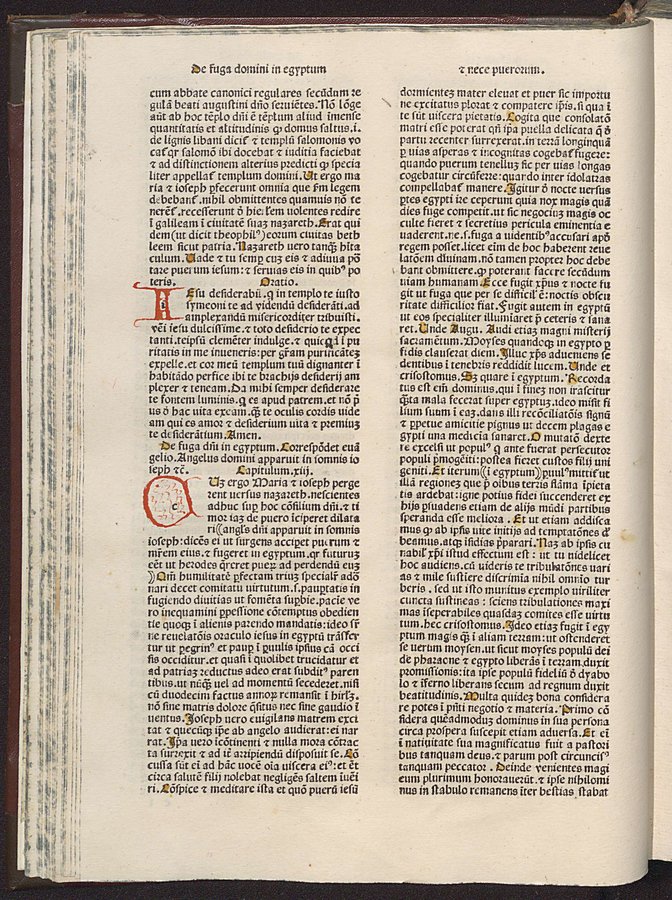 De fuga domini in egyptum
⁊ nece puerorum.
cum abbate canonici regulares secūdum re
gulā beati augustini dño seruiētes. Nō lōge
aūt ab hoc tēplo dñi ē tēplum aliud īmense
quantitatis et altitudinis ꝙ domus saltus.i.
de lignis libani dicit̉ ⁊ templū salomonis vo
cat̉ qꝛ salomō ibi docebat ⁊ iuditia faciebat
⁊ ad distinctionem alterius predicti ꝙ specia
liter appellat̉ templum domini. Ut ergo ma
ria ⁊ ioseph ꝑfecerunt omnia que ẜm legem
debebant. nihil obmittentes quamuis nō te
nerēt̉. recesserunt ō hierłem volentes redire
ī galileam ī ciuitatē suaꝫ nazareth. Erat qui
dem (ut dicit theophilꝰ) eorum ciuitas beth
leem sicut patria. Nazareth uero tanqꝫ hīta
culum. Uade ⁊ tu semꝑ cuꝫ eis ⁊ adiuua pō
tare puerum iesum: ⁊ seruias eis in quibꝰ po
teris. Oratio.
IEsu desiderabił. q̄ in templo te iusto
symeoni te ad videndū desiderāti. ad
amplexandū misericorditer tribuisti.
veni iesu dulcissime. ⁊ toto desiderio te expec
tanti. teipsū clemēter indulge. ⁊ quicqd ī pu
ritatis in me inueneris: per grām purificāteꝫ
expelle. et cor meū templum tuū dignanter ī
habitādo perfice ibi te brachijs desiderij am
plexer ⁊ teneam. Da mihi semper desiderare
te fontem luminis. q̄ es apud patrem. et nō pͥ
us ō hac vita exeam. q̄ȝ te oculis cordis vide
am qui es amor ⁊ desiderium vita ⁊ premiuꝫ
te desiderātium. Amen.
De fuga dñi in egyptum. Correspōdet euā
gelio. Angelus domini apparuit in somnis io
seph ⁊c̄. Capitulum.xij.
CUꝫ ergo Maria ⁊ ioseph perge
rent versus nazareth. nescientes
adhuc suꝑ hoc cōsilium dñi. ⁊ ti
mor iaꝫ de puero īciperet dilata
ri (angłs dñi apparuit in somnis
ioseph: dicēs ei ut surgens accipet pueꝝ ⁊
mr̄em eius. ⁊ fugeret in egyptum. qꝛ futurūꝫ
cēt ut herodes q̄reret pueꝝ ad perdendū euꝫ
)Om̄ humilitatē ꝑfectam triuꝫ specialꝭ adō
nari decet comitatu virtutum. s. paupertatis in
fugiendo diuitias ut fomēta suꝑbie. pacie ve
ro inequamini ꝑpessione cōtemptus obedien
tie quoqꝫ ī alienis parendo mandatis: ideo fr̄
ne reuelatōis oraculo iesus in egyptū trāsfer
tur ut peregrinꝰ et pauꝑ ī ꝑuulis ipsius cā occi
sis occiditur. et quasi ī quolibet trucidatur et
ad patriaꝫ reductus adeo erat subditꝰ paren
tibus. ut nūqꝫ uel ad momentū secederet. nisi
cū duodecim factus annoꝝ remansit ī hirłꝫ.
nō sine matris dolore q̄situs nec sine gaudio ī
uentus. Joseph uero euigilans matrem exci
tat ⁊ quecūqꝫ ip̄e ab angelo audierat: ei nar
rat. Ip̄a uero īcōtinenti ⁊ nulla mora cōtrac
ta surrexit ⁊ ad iē arripiendū disposuit se. Cō
cussa sūt ei̇ ad hāc uocē oīa viscera eiꝰ: et ēt
circa salutē filij nolebat negligēs saltem īuēi
ri. Cōspice ⁊ meditare ista et quō puerū iesū
dormienteꝫ mater eleuat et puer sic importu
ne excitatus plorat ⁊ compatere ip̄is. si qua ī
te sūt viscera pietatis. Cogita que consolatō
matri esse poterat qn̄ ip̄a puella delicata q̄ ō
partu recenter surrexerat. in terrā longinquā
ꝑ vias asperas ⁊ incognitas cogebat̉ fugere:
quando puerum tenellūꝫ sic per uias longas
cogebatur circūferre: quando inter idolatras
compellabat̉ manere. Igitur ō nocte versus
ptes egypti ire ceperum quia nox magis quā
dies fuge competit. ut sic negociuꝫ magis oc
culte fieret ⁊ secretius pericula eminentia e
uaderent. ne. s. fuga a uidentibꝰ accusari apō
regem posset. licet eim de hoc haberent reue
latōem diuinam. nō tamen propter hoc debe
bant obmittere. ꝙ poterant facere secūdum
uiam humanam. Ecce fugit xp̄us ⁊ nocte fu
git ut fuga que per se difficił ē: noctis obscu
ritate difficilior fiat. Fugit autem in egyptū
ut eos specialiter illuminaret p̄ ceteris ⁊ sana
ret. Unde Augu. Audi etiaꝫ magni misterij
sacramētum. Moyses quandoqꝫ in egypto ꝑ
fidis clauserat diem. Illuc xp̄s adueniens se
dentibus ī tenebris reddidit lucem. Unde et
crisostomus. Sꝫ quare ī egyptum. Recorda
tus est em̄ dominus. qui ī finem non irascitur
q̄ta mala fecerat super egyptuꝫ. ideo misit fi
lium suum ī eaꝫ. dans illi recōciliatōis signū
⁊ ꝑpetue amicitie pignus ut decem plagas e
gypti una medicīa sanaret. O mutatō dexte
re excelsi ut populꝰ q̄ ante fuerat persecutor
populi pͥmogēiti: postea fieret custos filij uni
geniti. Et iterum (ī egyptum) puulꝰ mittit̉ ut
illā regioneꝫ que p̄ oībus terris flāma īpieta
tis ardebat: igne potius fidei succenderet ex
hijs ꝑsuadens etiam de alijs mūdi partibus
speranda esse meliora. Et ut etiam addisca
mus ꝙ ab ipsis uite initijs ad temptatōnes de
beamus. atqꝫ īsidias p̄parari. Naꝫ ab ipsis cu
nabił xp̄i istud effectum est: ut tu nidelicet
hoc audiens. cū videris te tribulatōnes vari
as ⁊ mile sustiere discrimīa nihil omnīo tur
beris. sed ut isto munitus exemplo viriliter
cuncta sustineas: sciens tribulationes maxi
mas īseperabiles quasdaꝫ comites esse virtu
tum. hec crisostomus. Ideo etiaꝫ fugit ī egy
ptum magis q̄ȝ ī aliam terram: ut ostenderet
se uerum moysen. ut sicut moyses populū dei
de pharaone ⁊ egypto liberās ī terram duxit
promissionis: ita ipse populū fideliū ō dyabo
lo ⁊ īferno liberans secum ad regnum duxit
beatitudinis. Multa quideꝫ bona considera
re potes ī pn̄ti negotio ⁊ materia. Primo cō
sidera quēadmoduꝫ dominus in sua persona
circa prospera suscepit etiam aduersa. Et ei̇
ī natiuitate sua magnificatus fuit a pastori
bus tanquam deus. ⁊ parum post circuncisꝰ
tanquam peccator. Deinde venientes magi
eum plurimum honorauerūt. ⁊ ipse nihilomi
nus in stabulo remanens īter bestias stabat